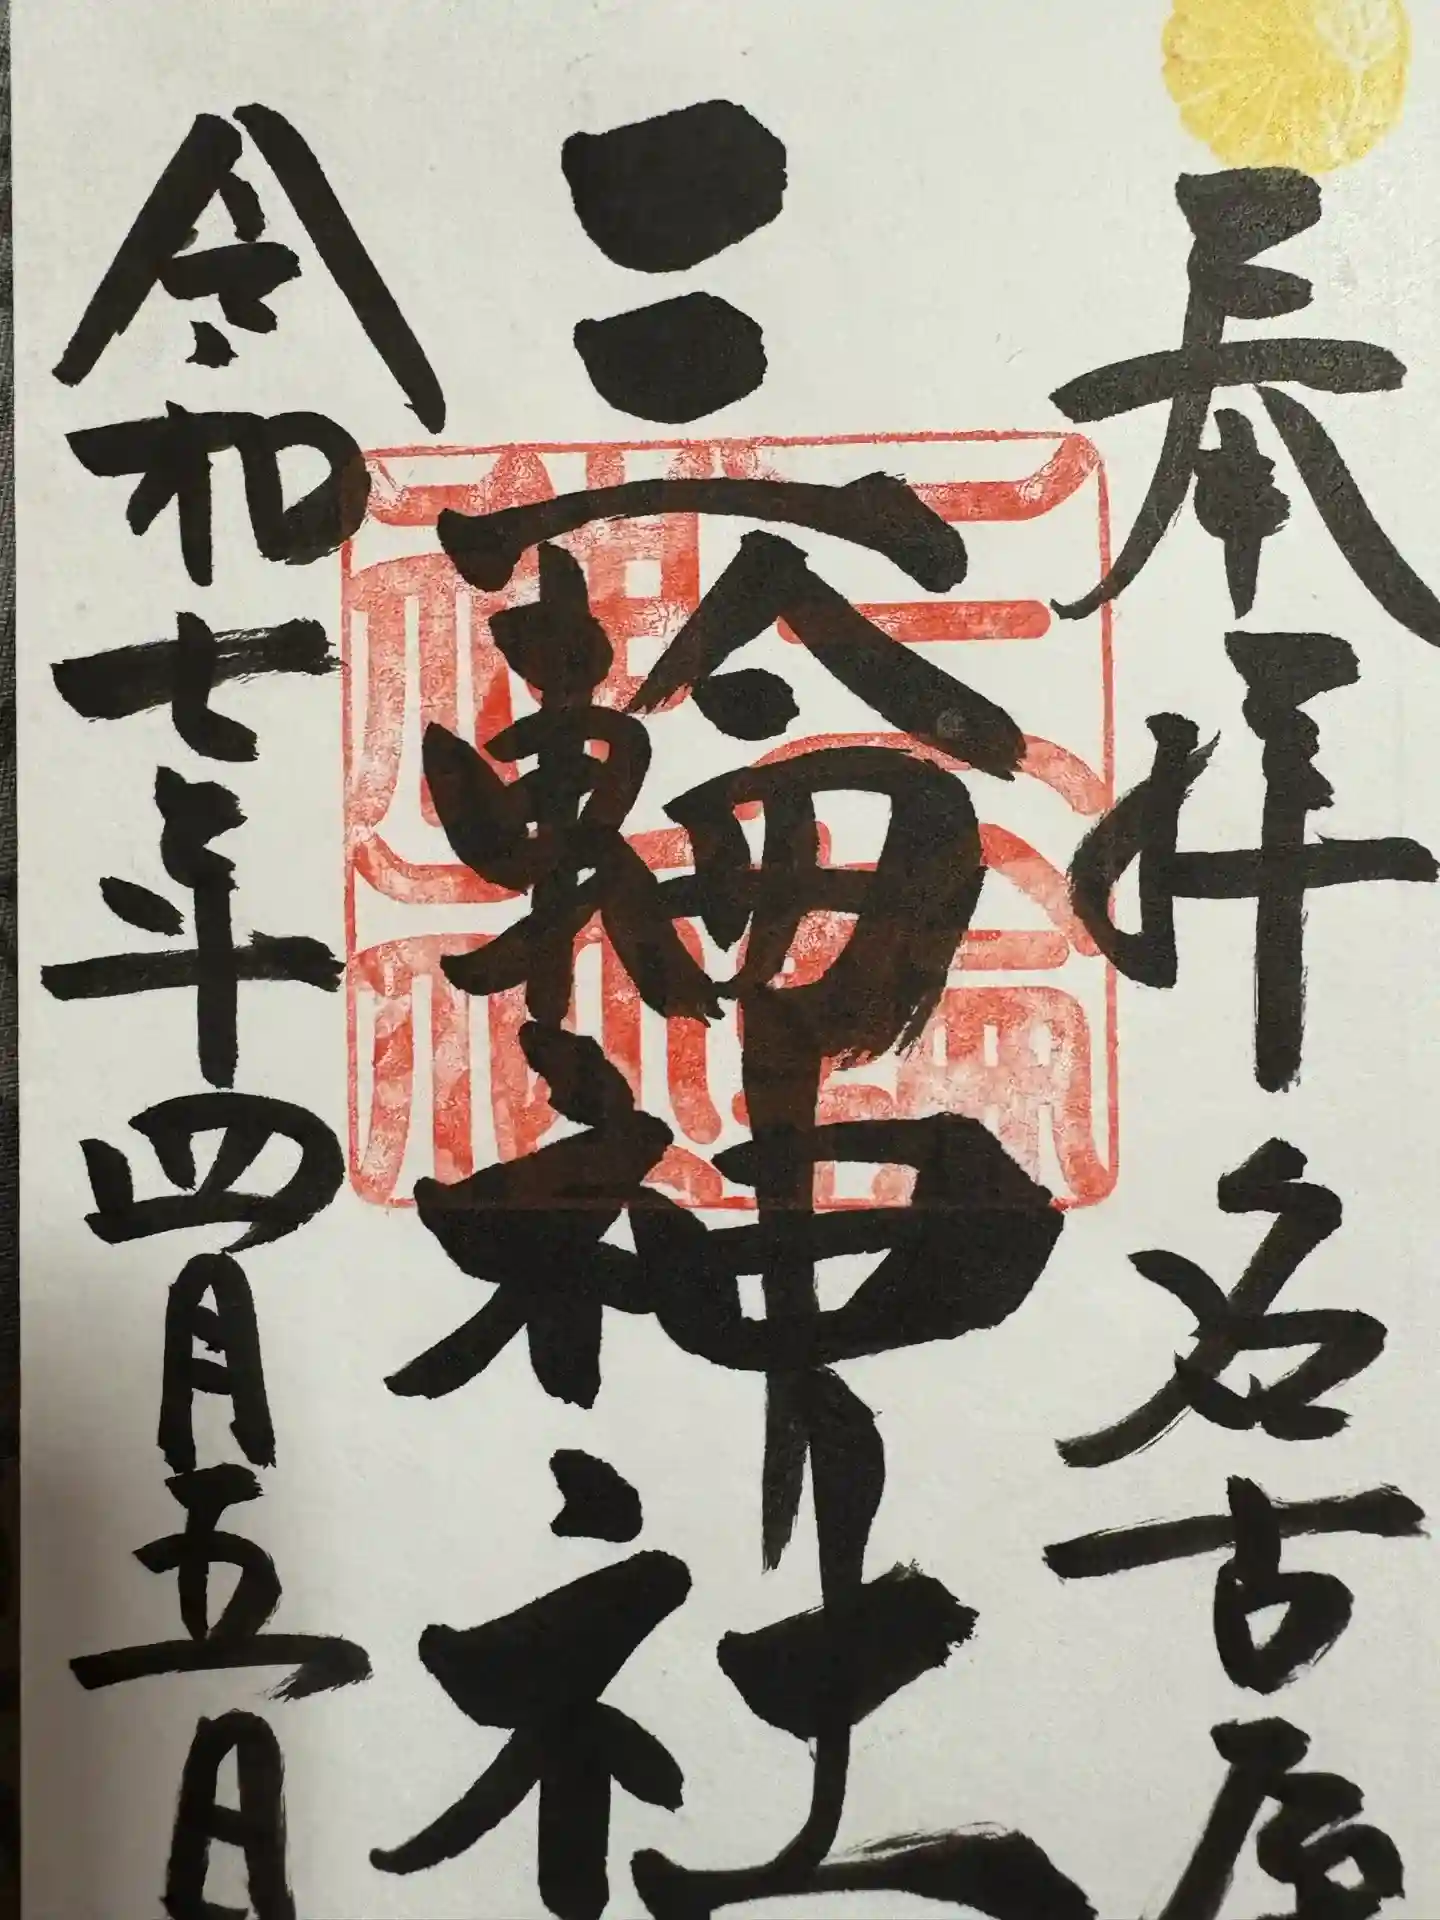 奉拝 名古屋
三輪神社
令和七年四月五日